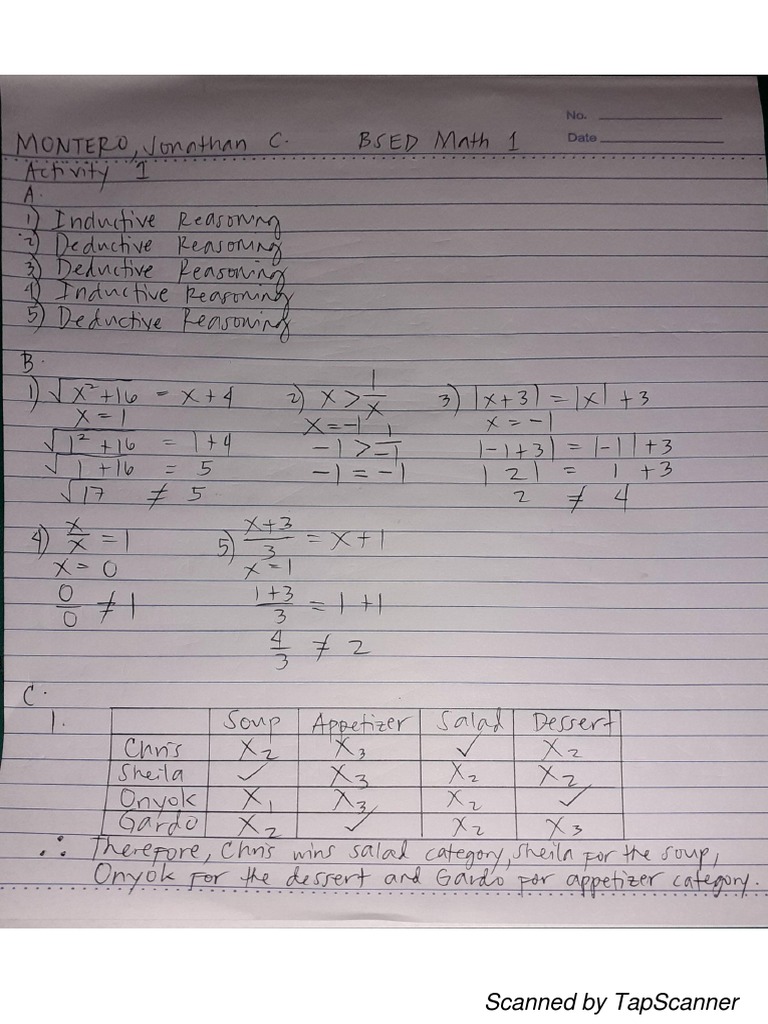 No.
MONTERO, Jonathan C. BSED Math 1 Date
Activity 1
A.
1) Inductive Reasoning
2) Deductive Reasoning
3) Deductive Reasoning
4) Inductive Reasoning
5) Deductive Reasoning
B.
1) √x²+16 = x+4
x = 1
√1²+16 = 1+4
√1+16 = 5
√17 ≠ 5
2) x > 1/x
x = -1
-1 > 1/-1
-1 = -1
3) |x+3| = |x| + 3
x = -1
|-1+3| = |-1|+3
|2| = 1 +3
2 ≠ 4
4) x/x = 1
x = 0
0/0 ≠ 1
5) x+3/3 = x+1
x = 1
1+3/3 = 1+1
4/3 ≠ 2
C.
1. Soup Appetizer Salad Dessert
Chris X₂ X₃ ✓ X₂
Sheila ✓ X₃ X₂ X₂
Onyok X₁ X₃ X₂ ✓
Gardo X₂ ✓ X₂ X₃
∴ Therefore, Chris wins salad category, Sheila for the soup,
Onyok for the dessert and Gardo for appetizer category.
Scanned by TapScanner